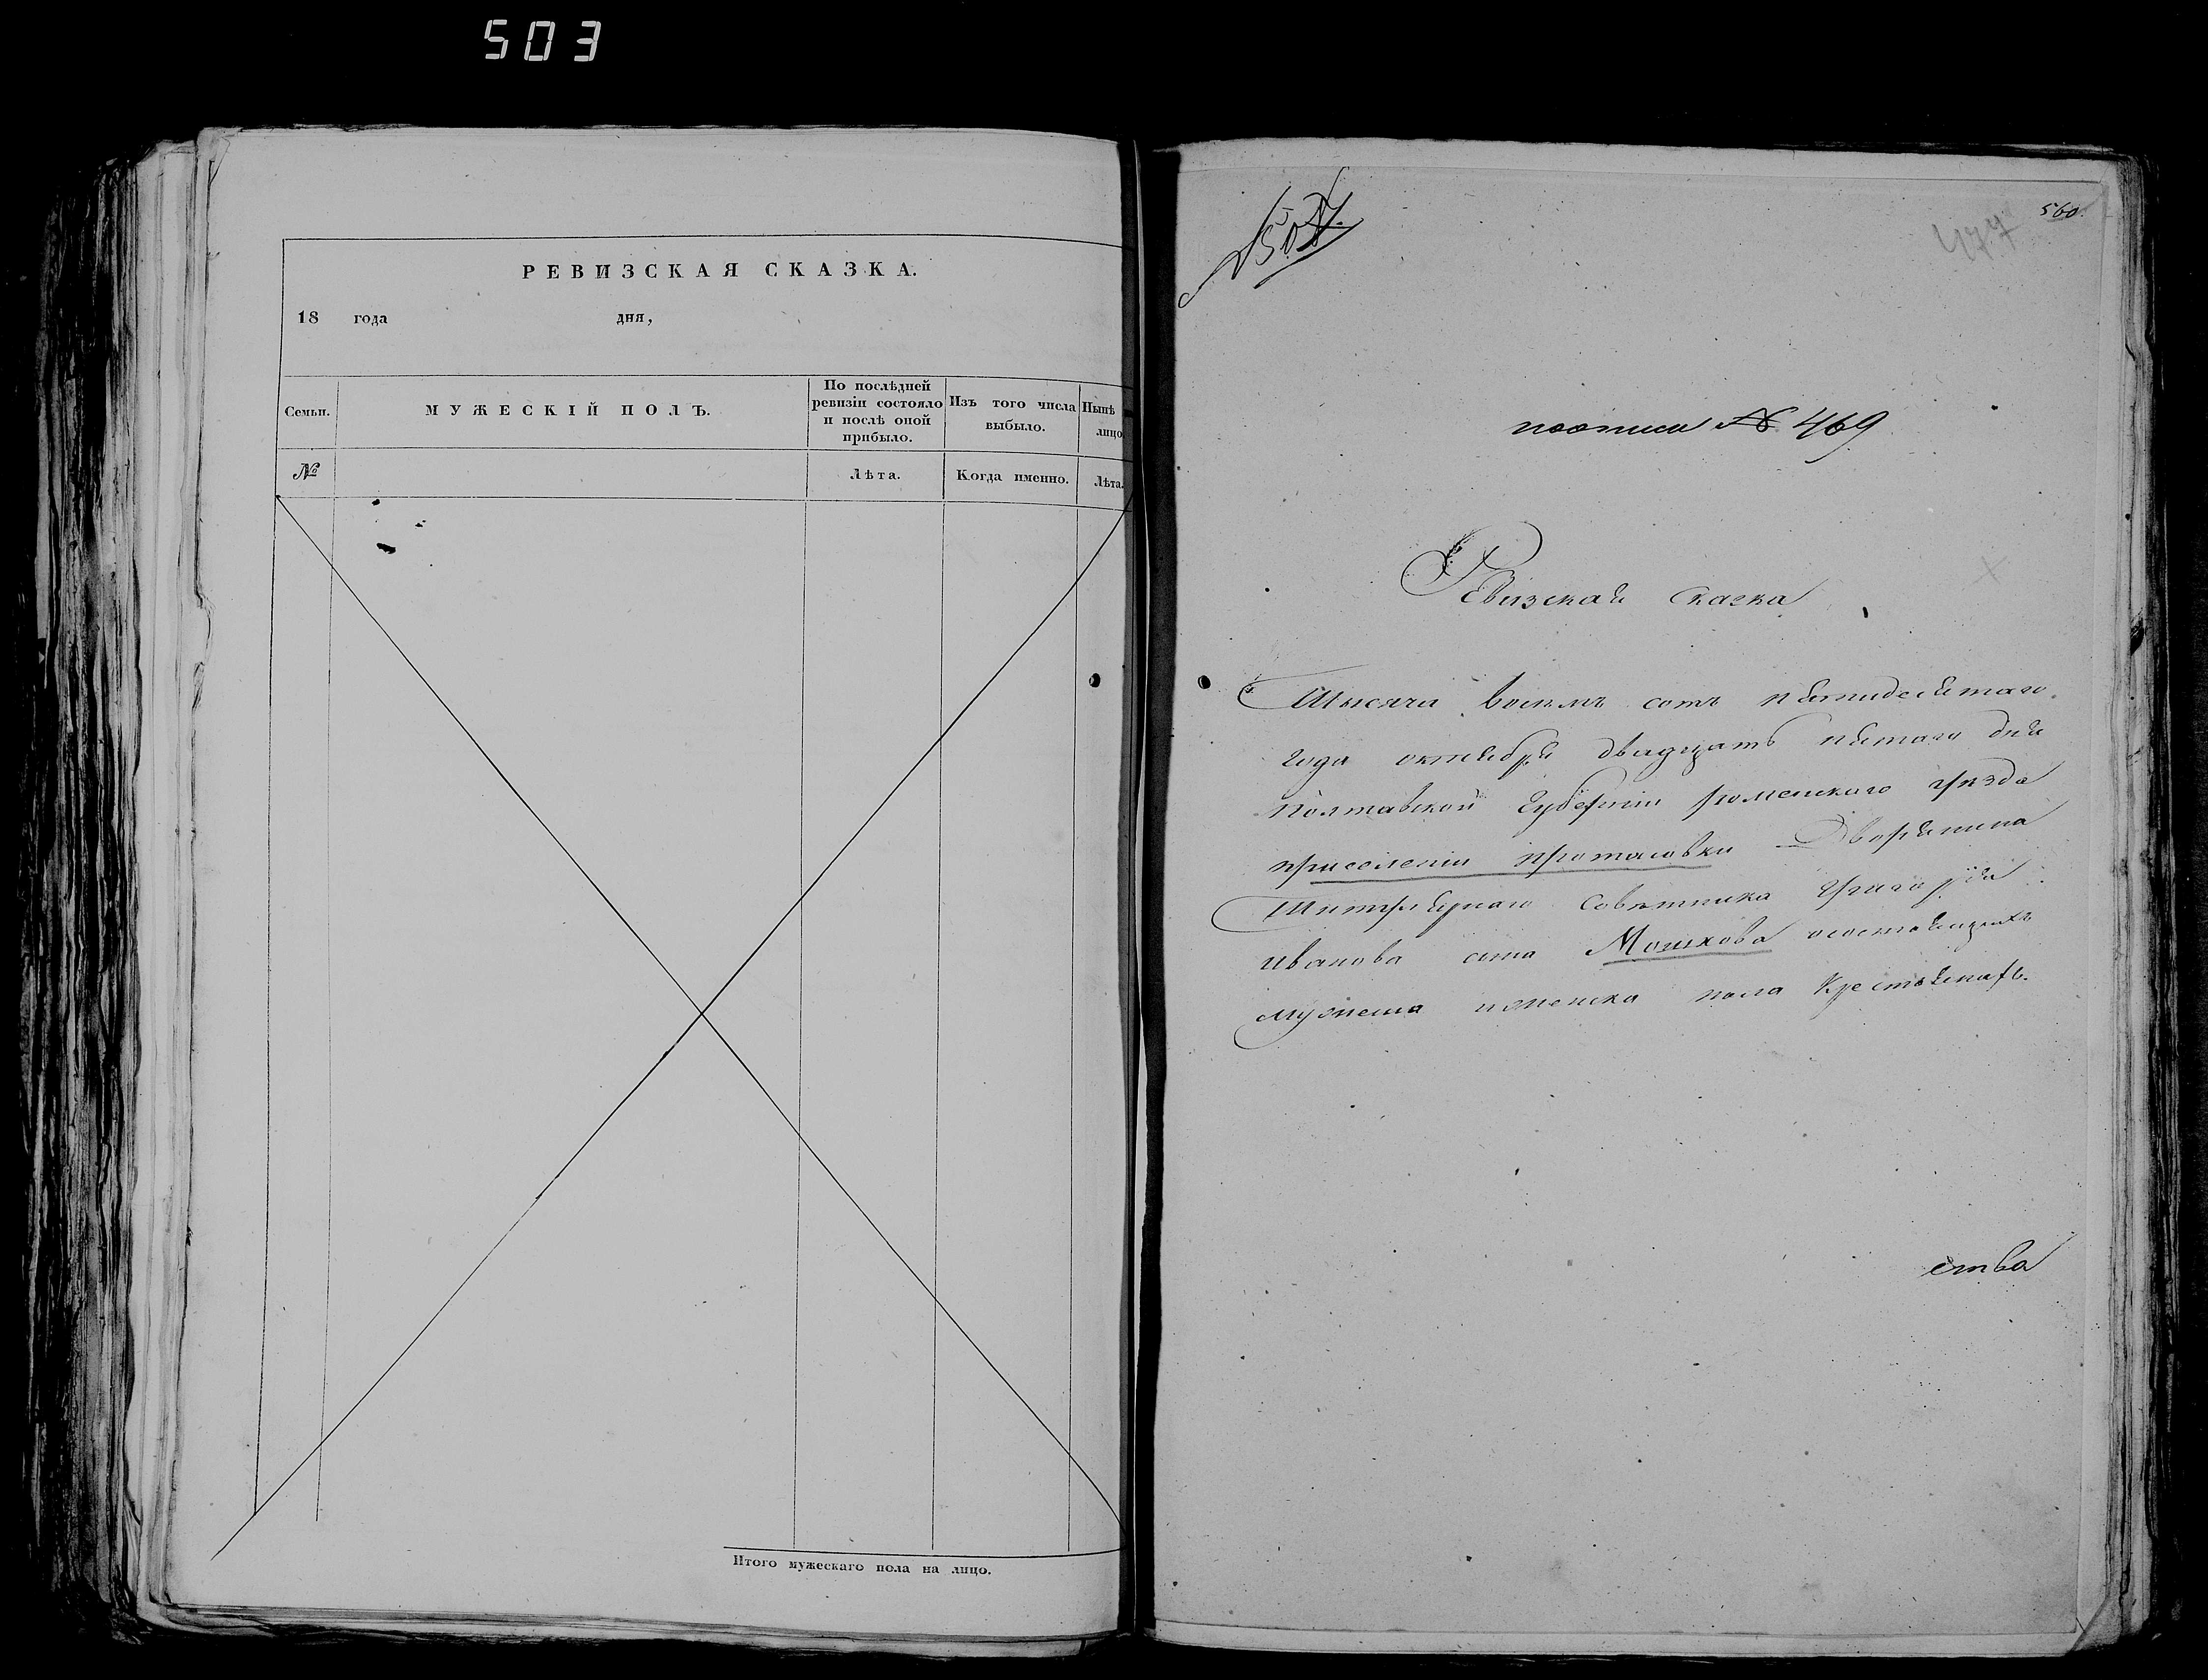 503
РЕВИЗСКАЯ СКАЗКА.
18 года дня,
Семьи.
МУЖЕСКІЙ ПОЛЪ.
По послѣдней ревизіи состояло и послѣ оной прибыло.
Изъ того числа выбыло.
Нынѣ лицо
№
Лѣта.
Когда именно.
Лѣта.
Итого мужескаго пола на лицо.
507.
477
560.
поописи № 469
Ревизская сказка
Тысяча восемъ сотъ пятидесятаго
года октября двадцать пятаго дня
Полтавской Губерніи роменского уѣзда
приселеніи протасовки Дворянина
Титулярнаго Совѣтника Григорія
иванова сина Мошкова осостоящихъ
мужеска иженска пола Крестьянахъ.
ства